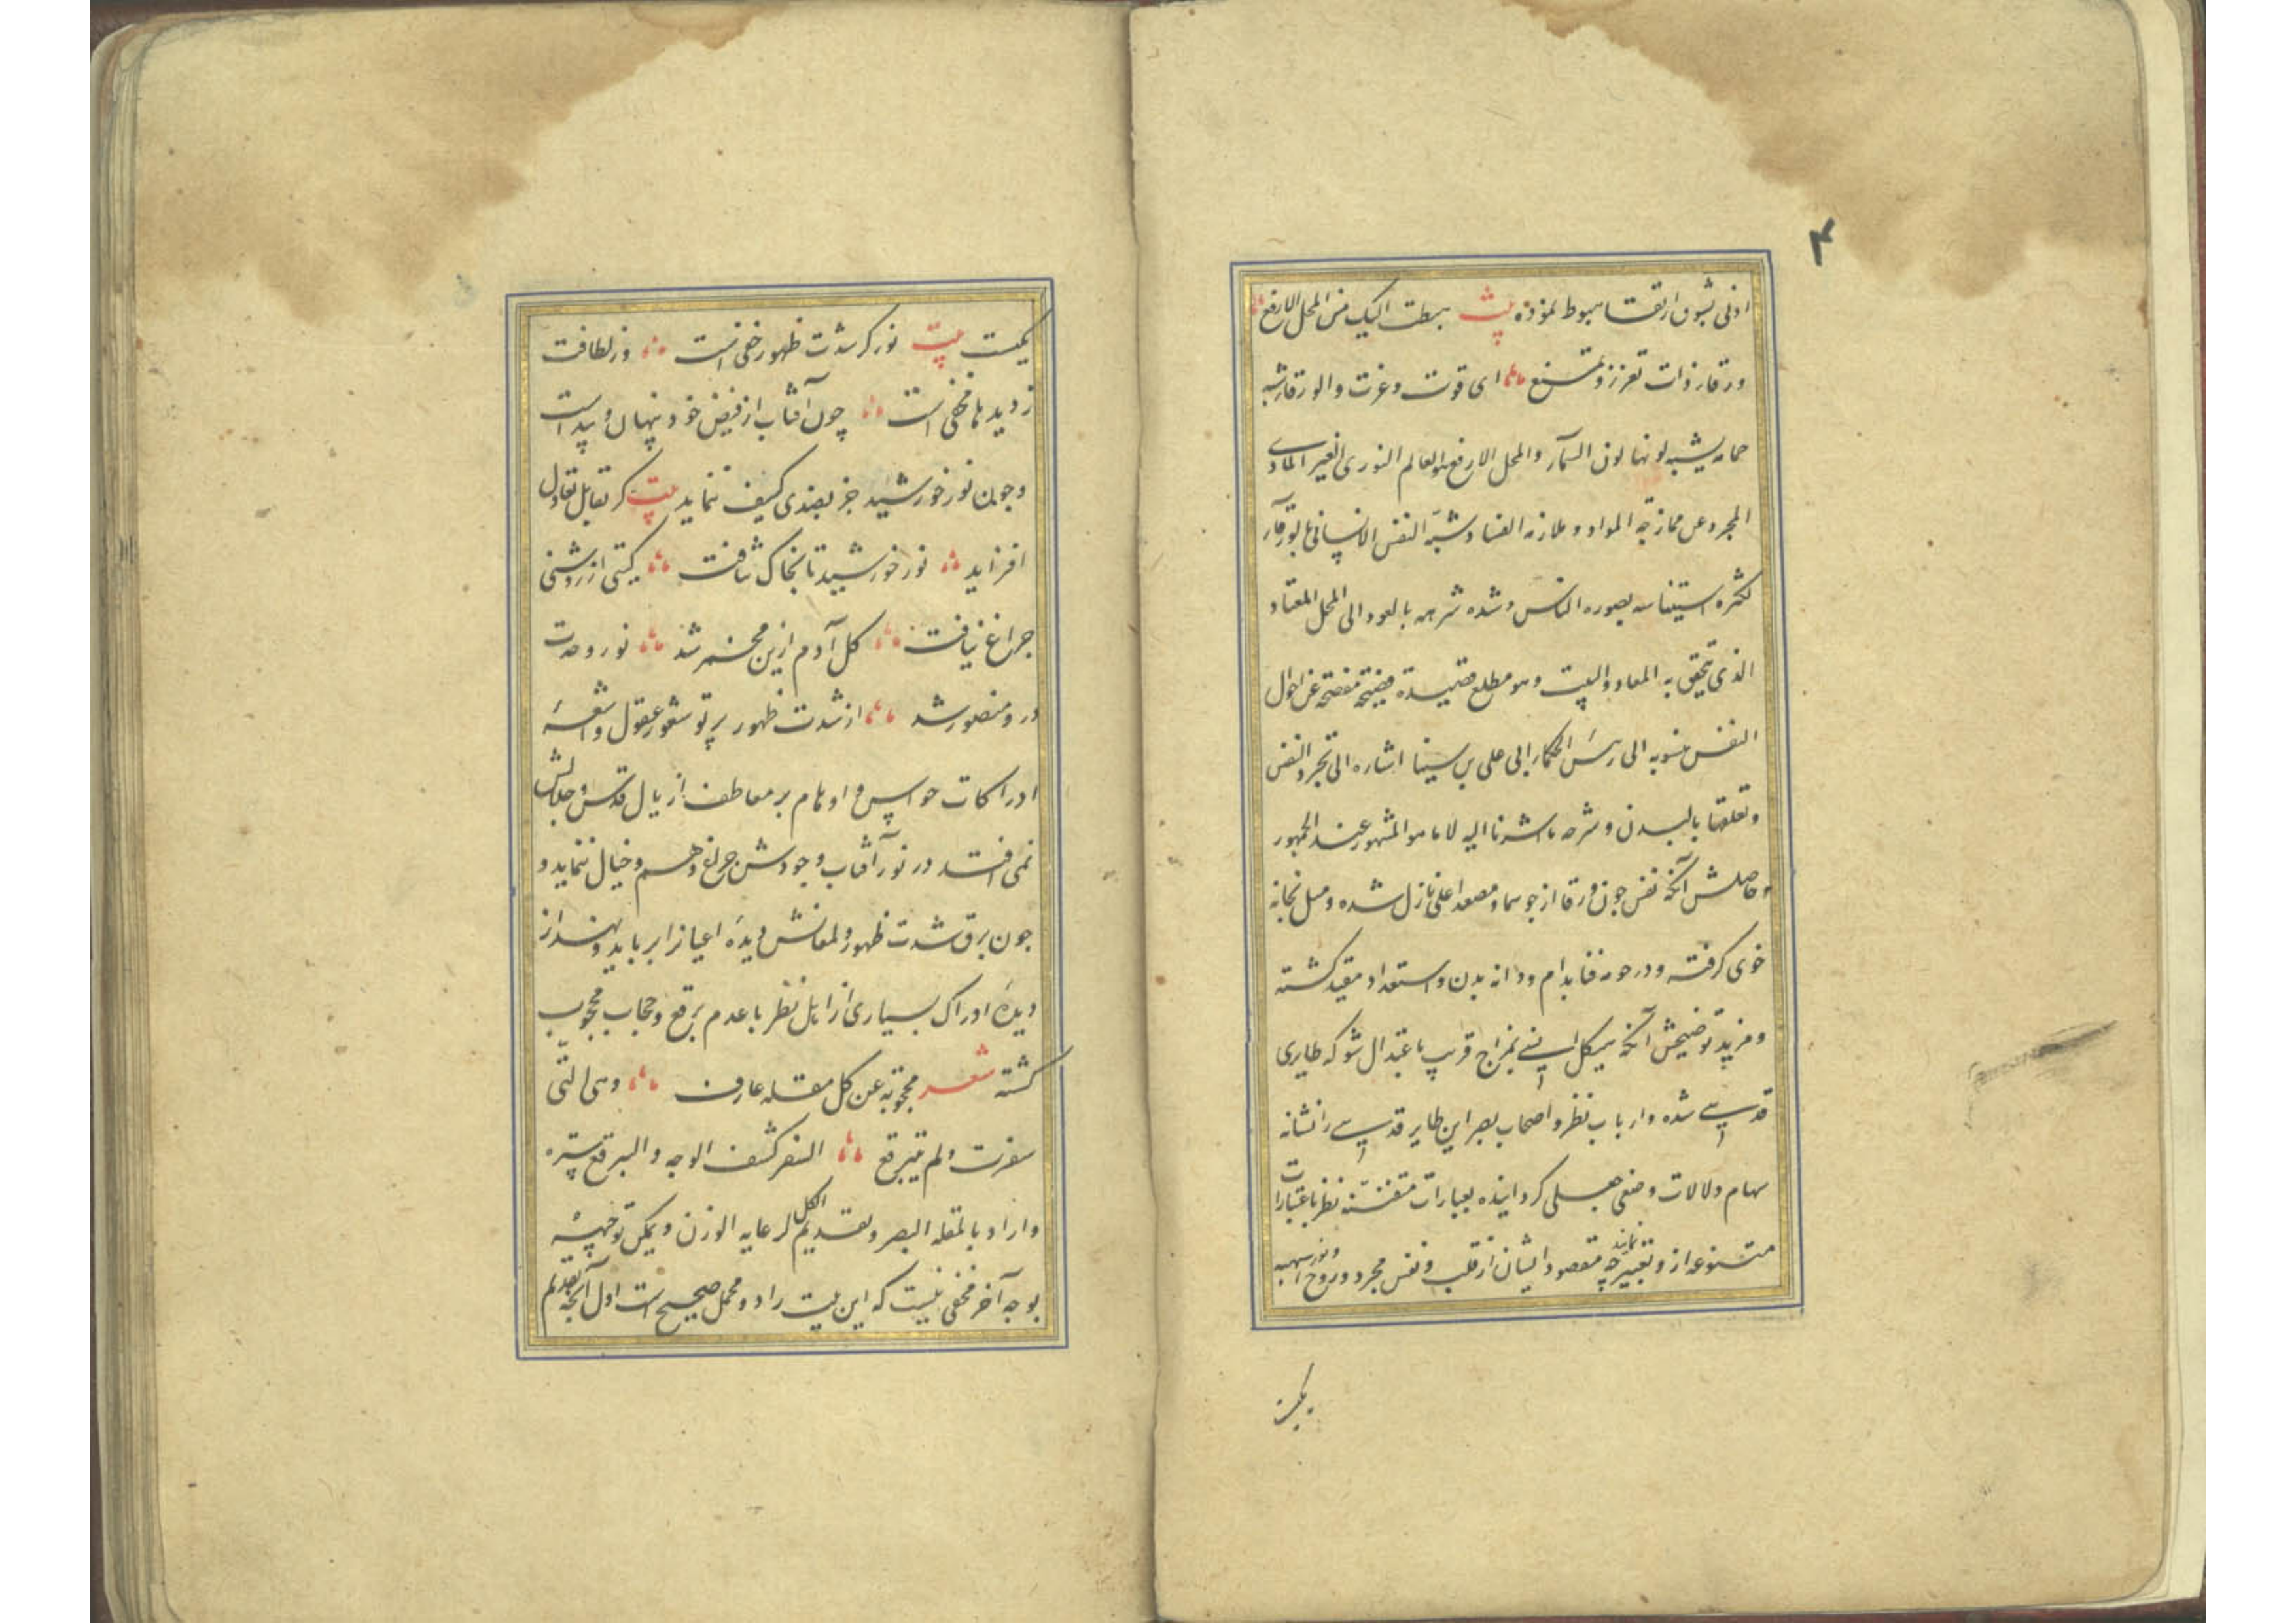 ۴
ادنی بشوق ارتقا هبوط نموده بیت هبطت الیک من المحل الارفع
ورقاء ذات تعزز و تمنع ای قوت و عزت والورقاء شبه
حمامه یشبه لونها لون السماء والمحل الارفع هو العالم النوری الغیر المادی
المجرد عن ممازجة المواد و ملازمه الفساد و شبّه النفس الانسانی بالورقاء
لکثره استیناسه بصوره الناس و شده شرهه بالعود الی المحل المعتاد
الذی یتحقق به المعاد والبیت وهو مطلع قصیده فصیحة مفصحة عن احوال
النفس منسوبه الی رئیس الحکماء ابی علی بن سینا اشاره الی تجرد النفس
وتعلقها بالبدن و شرحه ما اشرنا الیه لا ما هو المشهور عند الجمهور
و حاصلش آنکه نفس چون ورقا از جو سما و مصعد اعلی نازل شده و میل بخانه
خوی کرفته و در حومه فنا بدام و دانه بدن و استعداد مقید کشته
و مزید توضیحش آنکه هیکل انسانی بمزاج قریب باعتدال شو که طایری
قدسی شده و ارباب نظر و اصحاب بصر این طایر قدسی را نشانه
سهام دلالات وضعی جعلی کردانیده بعبارات متفننه نظر باعتبارات
متنوعه ازو تعبیر نمایند چه مقصود ایشان از قلب و نفس مجرد و روح و نور اسپهبد
یکیست
یکیست بیت نور کز شدت ظهور خفی است وز لطافت
ز دیدها مخفی است چون آفتاب از فیض خود پنهان و پیداست
و چون نور خورشید جز بضدی کثیف ننماید بیت کر تقابل تعادل
افزاید نور خورشید تا بخاک نتافت کیتی از روشنی
چراغ نیافت کل آدم ازین مخمر شد نور وحدت
درو منصور شد از شدت ظهور پرتو شعور عقول و اشعهٔ
ادراکات حواس و اوهام بر معاطف ازیال قدس و جلالش
نمی افتد در نور آفتاب وجودش چراغ وهم و خیال ننماید و
چون برق شدت ظهور و لمعانش دیدهٔ اعیانرا برباید و بهند از
دیدهٔ ادراک بسیاری از اهل نظر با عدم برقع و حجاب محجوب
کشته شعر محجوبة عن کل مقله عارف وهی التی
سفرت ولم تتبرقع السفر کشف الوجه والبرقع ستره
واراد بالمقله البصر و تقدیم الکل لرعایه الوزن و یمکن توجیهه
بوجه آخر مخفی نیست که این بیت را دو محمل صحیح است اول آنکه بتقدیم